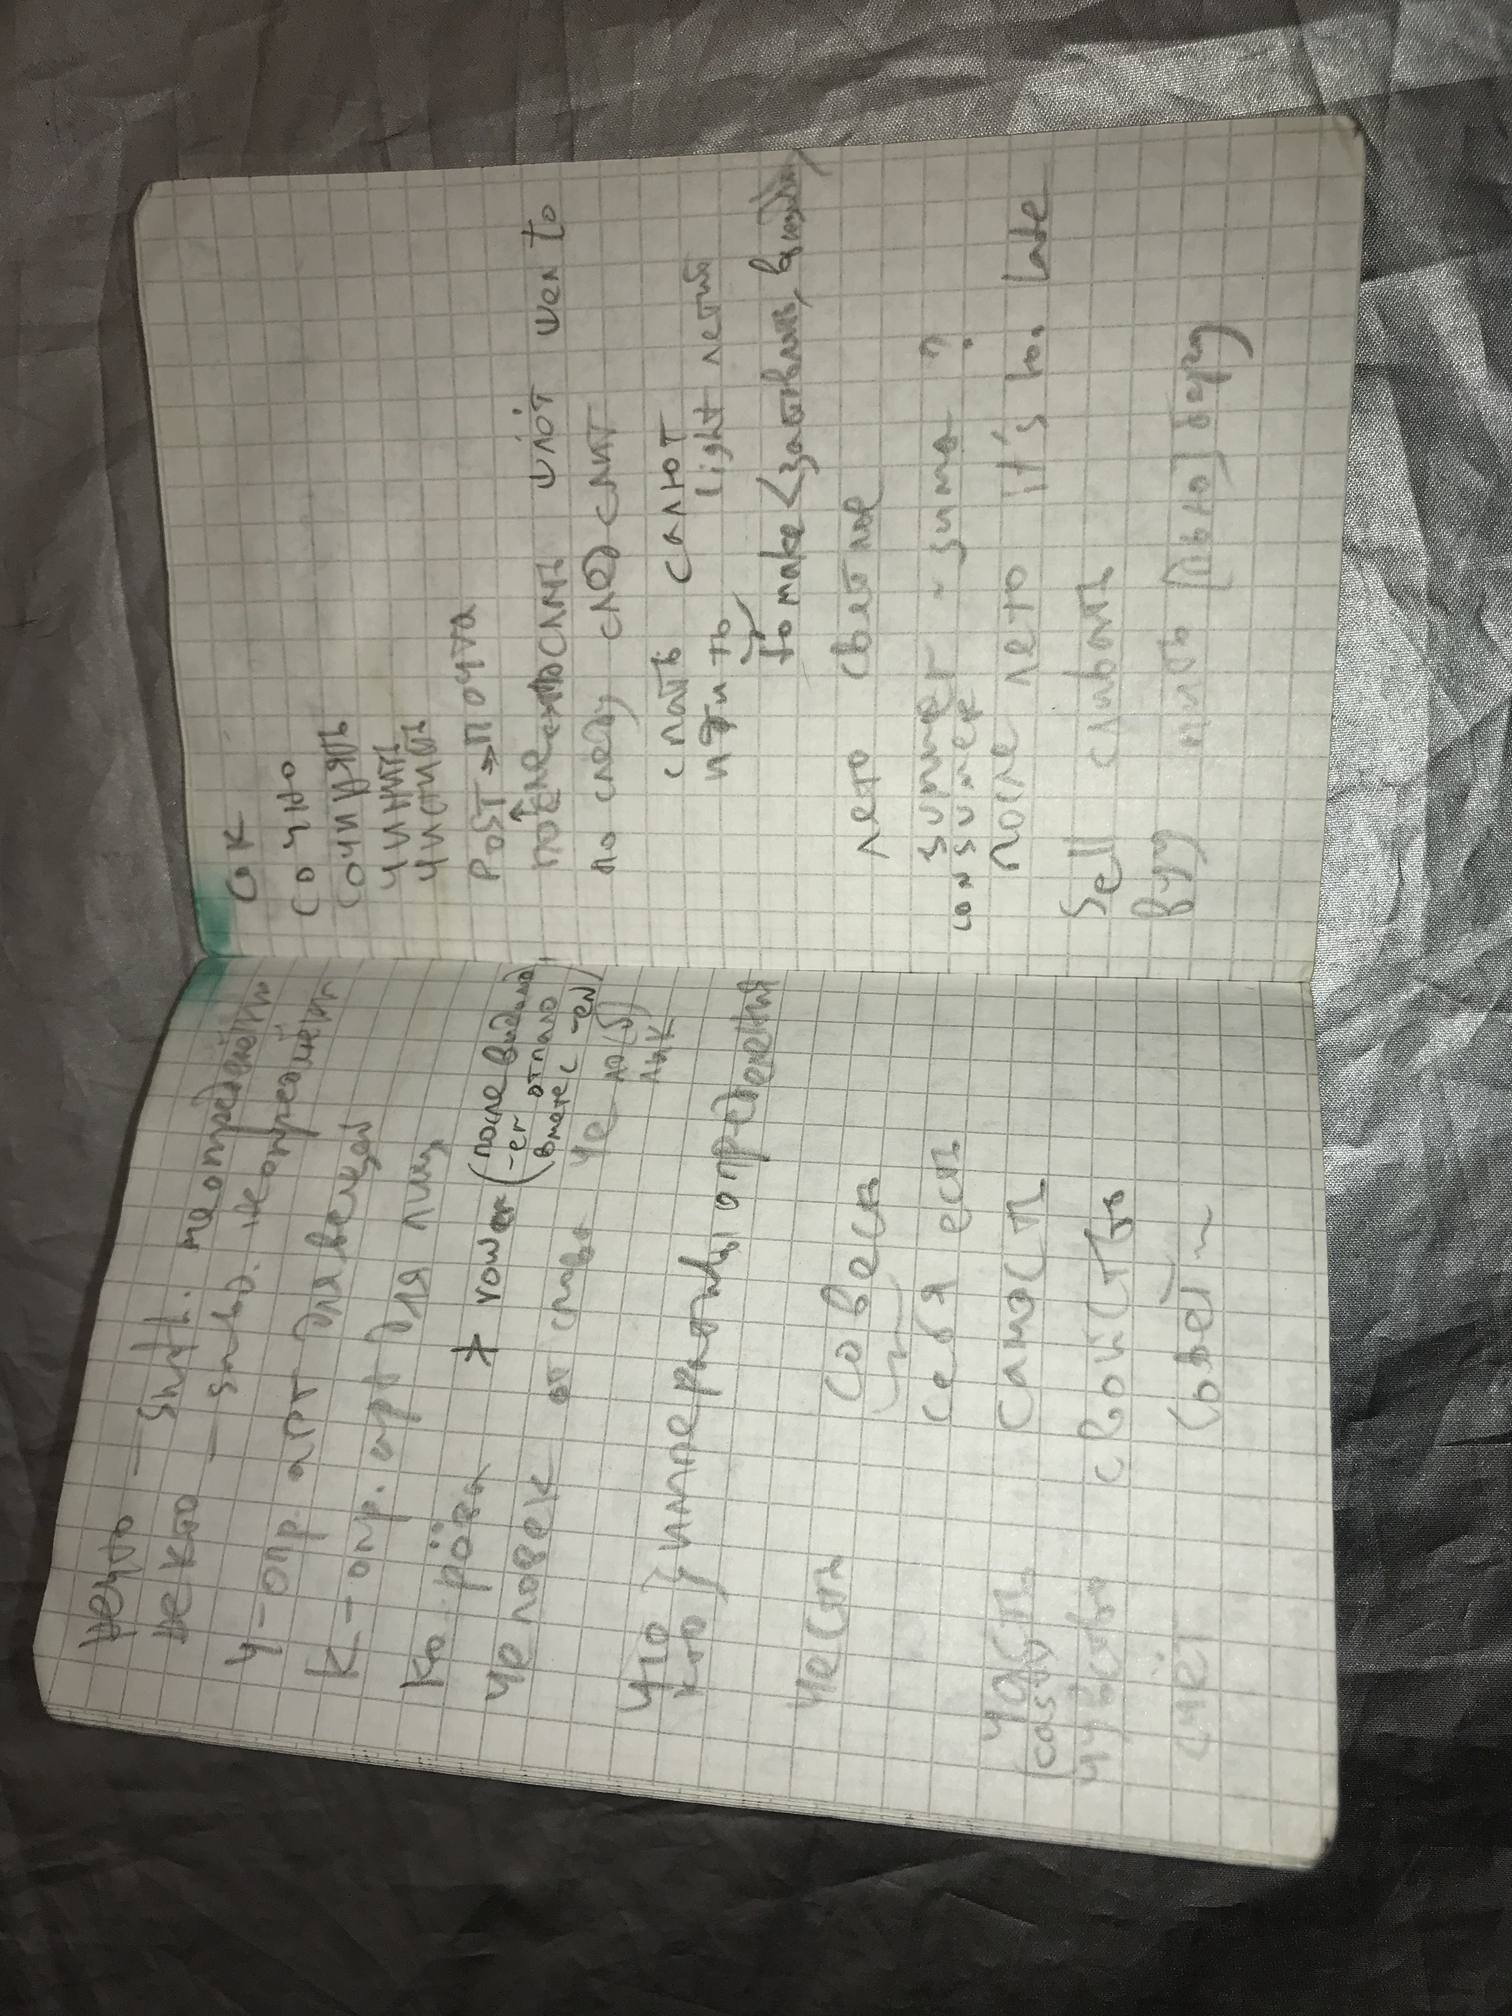 нечто — smth. неопределённ
некто — smbd. неопределённ
Ч - опр. арт для вещей
К - опр. арт для лиц
Ко рова * rower (после видимо
-er отпало
вместе с -en)
Человек от слова че ло(б)
лик
что
кто } императивы определения
Честь совесть
себя есть
часть самость
(cast)
чувство свойство
счёт совет
сок
сочно
сочинять
чинить
чистить
post → почта
после послать шлют went to
по следу след слит
спать салют
идти light летий
to make < заставлять,
лето светлое
summer ~ зима ?
consumer
после лето it's to. late
Sell сливать
Buy пить [пью] беру